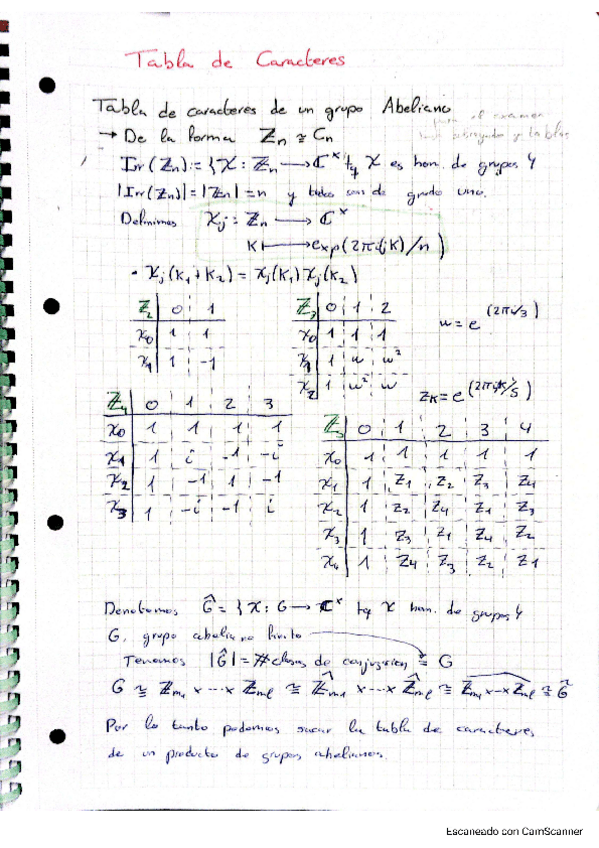 Tabla de Caracteres
Tabla de caracteres de un grupo Abeliano
para el examen
→ De la forma ℤn ≅ Cn
y tablas
Irr(ℤn) := {χ : ℤn → ℂ^x tq χ es hom. de grupos}
|Irr(ℤn)| = |ℤn| = n y todos son de grado uno.
Definimos χj : ℤn → ℂ^x
k ⟼ exp(2πijk)/n)
• χj(k1+k2) = χj(k1)χj(k2)
ℤ2 0 1
χ0 1 1
χ1 1 -1
ℤ3 0 1 2
χ0 1 1 1
χ1 1 w w²
χ2 1 w² w
w = e^(2πi/3)
zk = e^(2πik/5)
ℤ4 0 1 2 3
χ0 1 1 1 1
χ1 1 i -1 -i
χ2 1 -1 1 -1
χ3 1 -i -1 i
ℤ5 0 1 2 3 4
χ0 1 1 1 1 1
χ1 1 z1 z2 z3 z4
χ2 1 z2 z4 z1 z3
χ3 1 z3 z1 z4 z2
χ4 1 z4 z3 z2 z1
Denotamos Ĝ = {χ : G → ℂ^x tq χ hom. de grupos}
G, grupo abeliano finito
Tenemos |Ĝ| = # clases de conjugación ≅ G
G ≅ ℤm1 x ··· x ℤml ≅ ℤ̂m1 x ··· x ℤ̂ml ≅ ℤm1 x ··· x ℤml ≅ Ĝ
Por lo tanto podemos sacar la tabla de caracteres
de un producto de grupos abelianos.
Escaneado con CamScanner